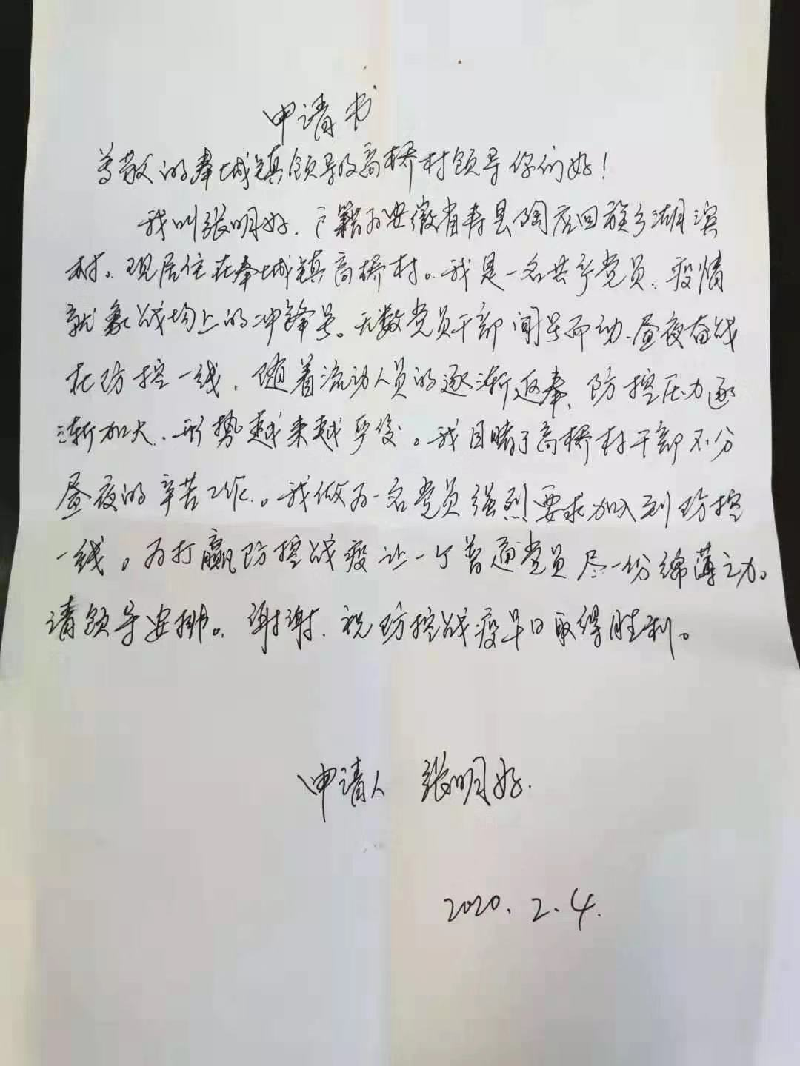 申请书
尊敬的奉城镇领导及高桥村领导你们好！
我叫张明好、户籍为安徽省寿县陶店回族乡湖滨
村。现居住在奉城镇高桥村。我是一名共产党员、疫情
就象战场上的冲锋号。无数党员干部闻号而动、昼夜奋战
在防控一线、随着流动人员的逐渐返奉、防控压力逐
渐加大、形势越来越严峻。我目睹了高桥村干部不分
昼夜的辛苦工作。我做为一名党员强烈要求加入到防控
一线。为打赢防控战疫让一个普通党员尽一份绵薄之力。
请领导安排。谢谢、祝防控战疫早日取得胜利。
申请人 张明好.
2020.2.4.